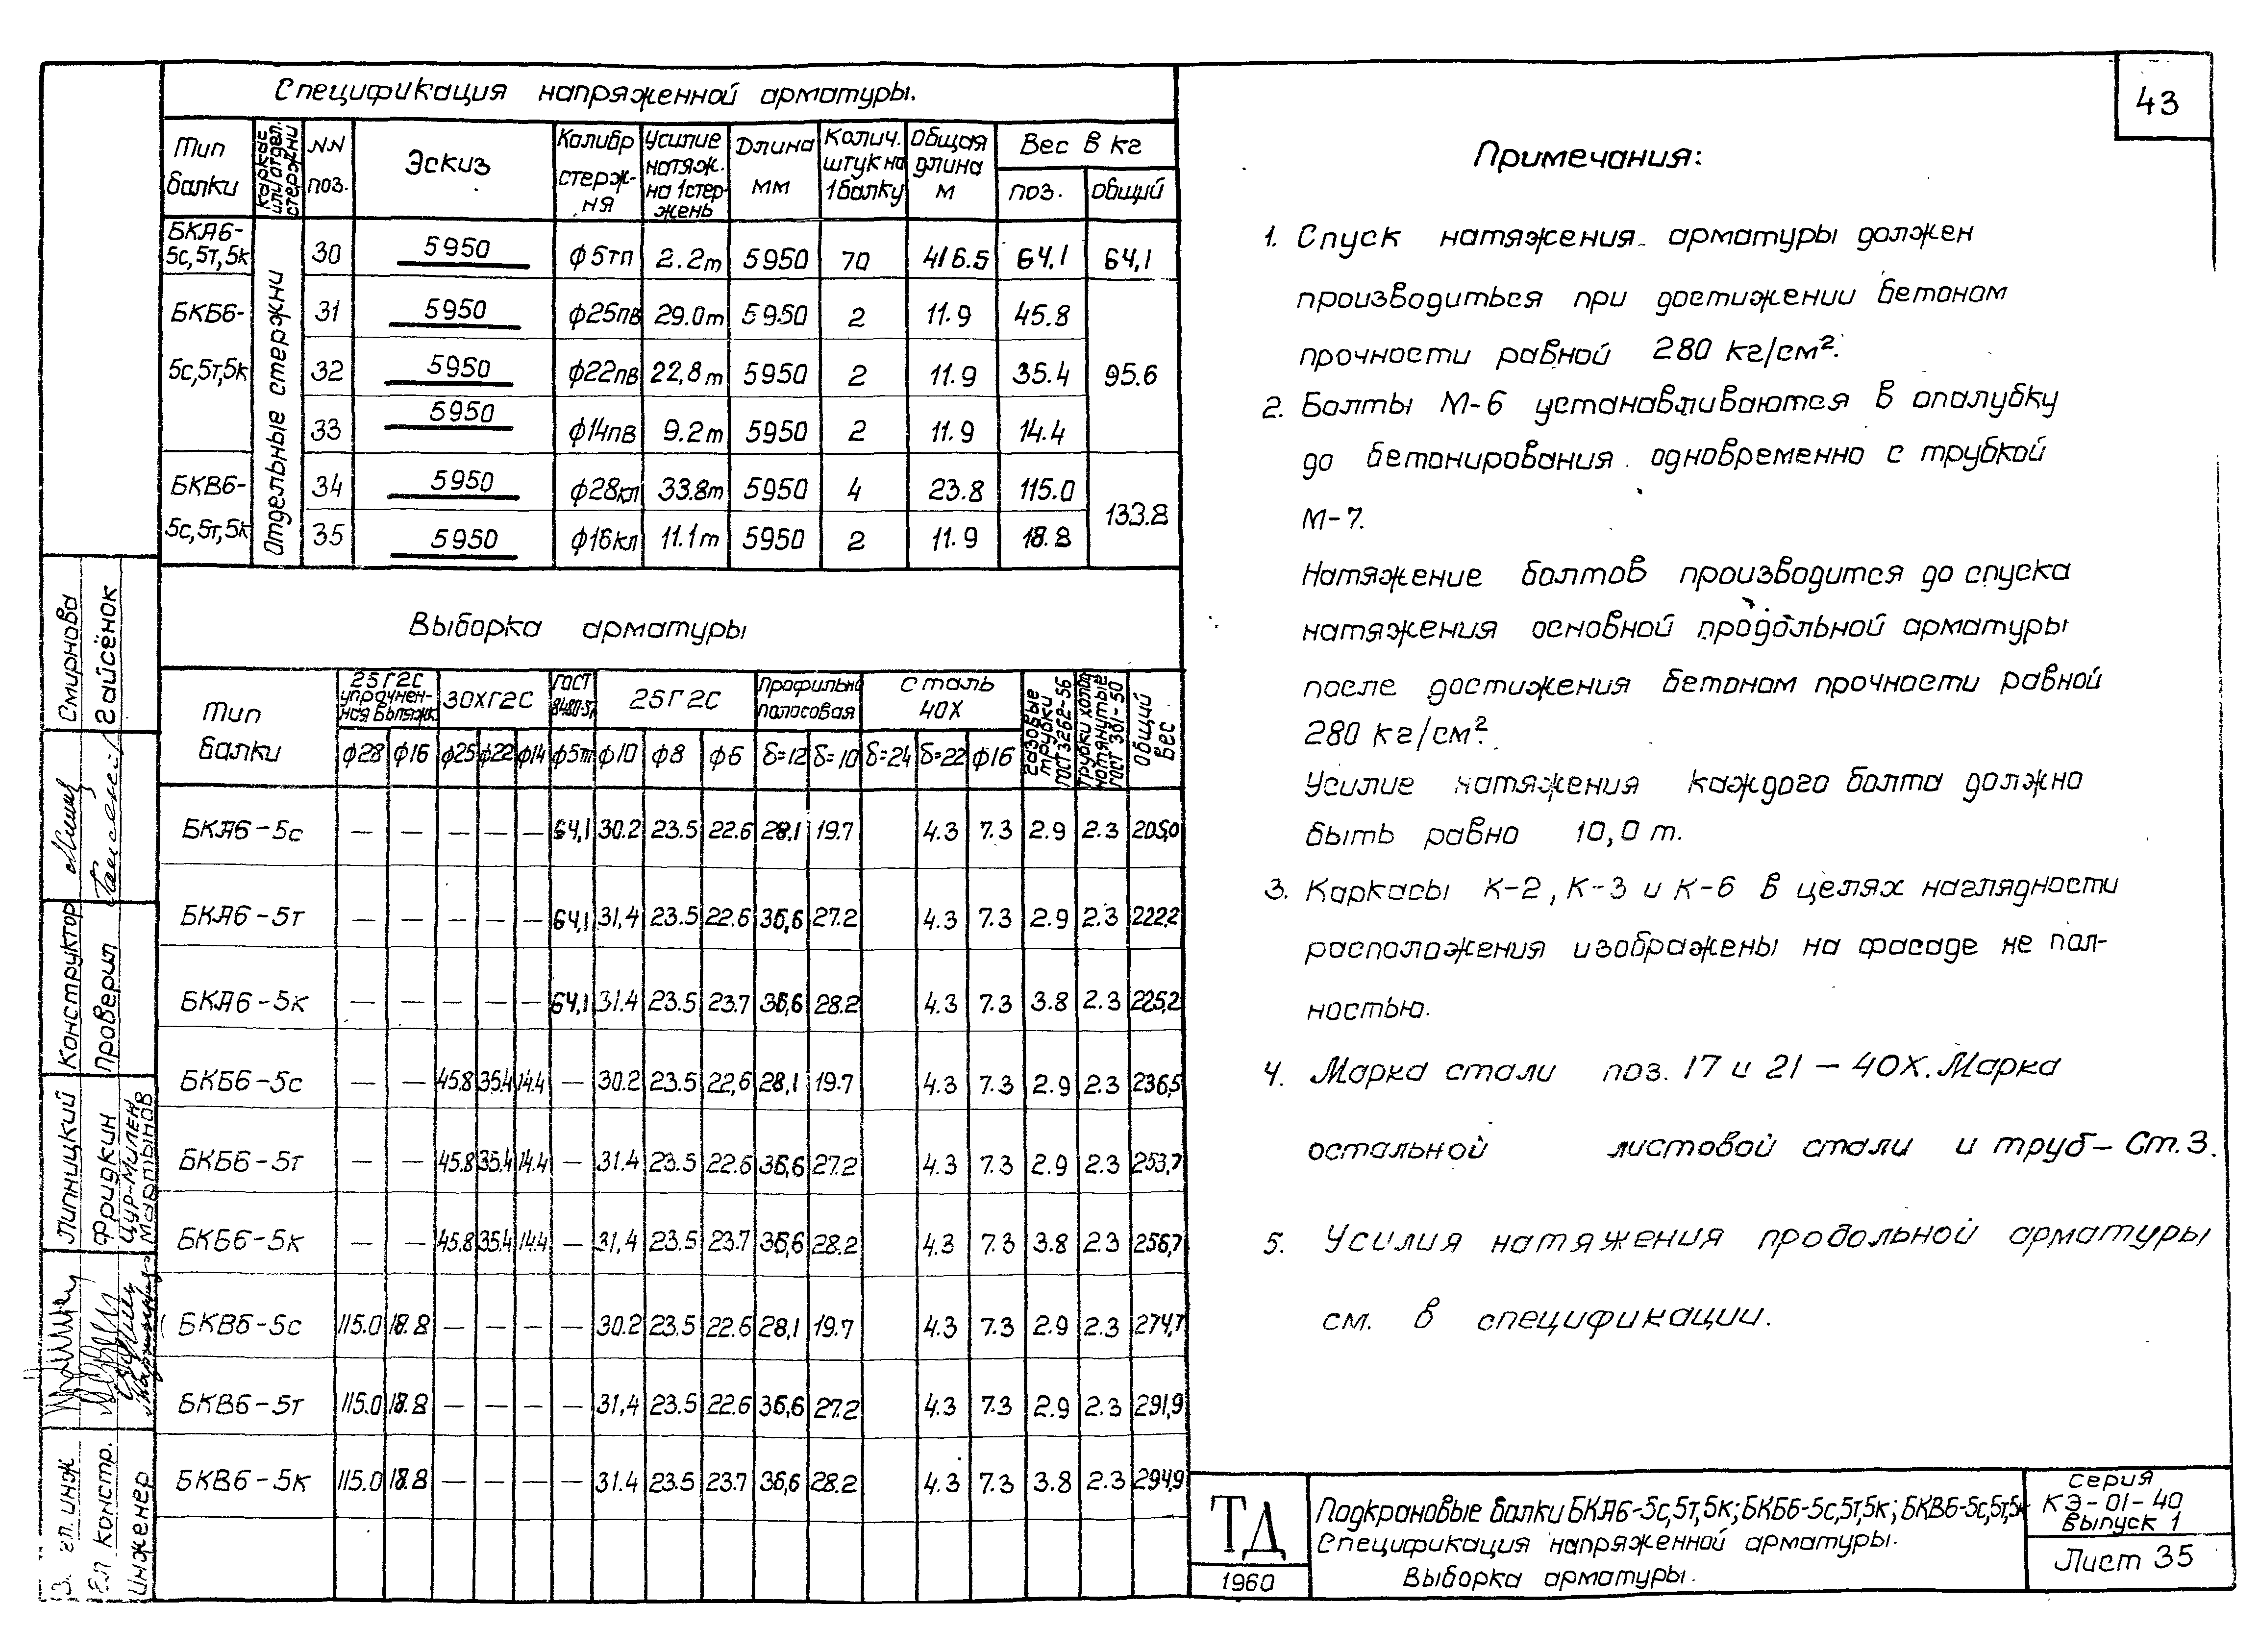 43
Спецификация напряженной арматуры.
Тип балки | каркас или отдел. стержни | NN поз. | Эскиз | Калибр стерж-ня | Усилие натяж. на 1 стер-жень | Длина мм | Колич. штук на 1 балку | Общая длина м | Вес в кг поз. | общий
БКА6-5с,5т,5к | Отдельные стержни | 30 | 5950 | ф5тп | 2.2т | 5950 | 70 | 416.5 | 64,1 | 64,1
БКБ6- | 31 | 5950 | ф25пв | 29.0т | 5950 | 2 | 11.9 | 45.8
5с,5т,5к | 32 | 5950 | ф22пв | 22,8т | 5950 | 2 | 11.9 | 35.4 | 95.6
33 | 5950 | ф14пв | 9.2т | 5950 | 2 | 11.9 | 14.4
БКВ6- | 34 | 5950 | ф28кл | 33.8т | 5950 | 4 | 23.8 | 115.0 | 133.8
5с,5т,5к | 35 | 5950 | ф16кл | 11.1т | 5950 | 2 | 11.9 | 18.8
Выборка арматуры
Тип балки | 25Г2С упрочнен-ная вытяж. | 30ХГ2С | ГОСТ 8480-57 | 25Г2С | Профильно полосовая | Сталь 40Х | Газовые трубки ГОСТ 3262-56 | Трубки холод натянутые ГОСТ 301-50 | Общий вес
ф28 | ф16 | ф25 | ф22 | ф14 | ф5тп | ф10 | ф8 | ф6 | δ=12 | δ=10 | δ=24 | δ=22 | ф16
БКА6-5с | — | — | — | — | — | 64,1 | 30.2 | 23.5 | 22.6 | 28,1 | 19.7 | 4.3 | 7.3 | 2.9 | 2.3 | 205,0
БКА6-5т | — | — | — | — | — | 64,1 | 31,4 | 23.5 | 22.6 | 36,6 | 27.2 | 4.3 | 7.3 | 2.9 | 2.3 | 222,2
БКА6-5к | — | — | — | — | — | 64,1 | 31.4 | 23.5 | 23.7 | 36,6 | 28.2 | 4.3 | 7.3 | 3.8 | 2.3 | 225,2
БКБ6-5с | — | — | 45.8 | 35.4 | 14.4 | — | 30.2 | 23.5 | 22,6 | 28,1 | 19.7 | 4.3 | 7.3 | 2.9 | 2.3 | 236,5
БКБ6-5т | — | — | 45.8 | 35.4 | 14.4 | — | 31.4 | 23.5 | 22.6 | 36,6 | 27.2 | 4.3 | 7.3 | 2.9 | 2.3 | 253,7
БКБ6-5к | — | — | 45.8 | 35.4 | 14.4 | — | 31,4 | 23.5 | 23.7 | 36,6 | 28.2 | 4.3 | 7.3 | 3.8 | 2.3 | 256,7
БКВ6-5с | 115.0 | 18.8 | — | — | — | — | 30.2 | 23.5 | 22.6 | 28,1 | 19.7 | 4.3 | 7.3 | 2.9 | 2.3 | 274,7
БКВ6-5т | 115.0 | 18.8 | — | — | — | — | 31,4 | 23.5 | 22.6 | 36,6 | 27.2 | 4.3 | 7.3 | 2.9 | 2.3 | 291,9
БКВ6-5к | 115.0 | 18.8 | — | — | — | — | 31.4 | 23.5 | 23.7 | 36,6 | 28.2 | 4.3 | 7.3 | 3.8 | 2.3 | 294,9
Примечания:
1. Спуск натяжения арматуры должен
производиться при достижении бетоном
прочности равной 280 кг/см².
2. Болты М-6 устанавливаются в опалубку
до бетонирования одновременно с трубкой
М-7.
Натяжение болтов производится до спуска
натяжения основной продольной арматуры
после достижения бетоном прочности равной
280 кг/см².
Усилие натяжения каждого болта должно
быть равно 10,0 т.
3. Каркасы К-2, К-3 и К-6 в целях наглядности
расположения изображены на фасаде не пол-
ностью.
4. Марка стали поз. 17 и 21 – 40Х. Марка
остальной листовой стали и труб – Ст.3.
5. Усилия натяжения продольной арматуры
см. в спецификации.
ТД
1960
Подкрановые балки БКА6-5с,5т,5к; БКБ6-5с,5т,5к; БКВ6-5с,5т,5к
Спецификация напряженной арматуры.
Выборка арматуры.
серия
КЭ-01-40
выпуск 1
Лист 35
Смирнова
Гайсёнок
Конструктор
Проверил
Липницкий
Фридкин
Цур-Милен
Мартынов
гл. инж
констр.
Инженер